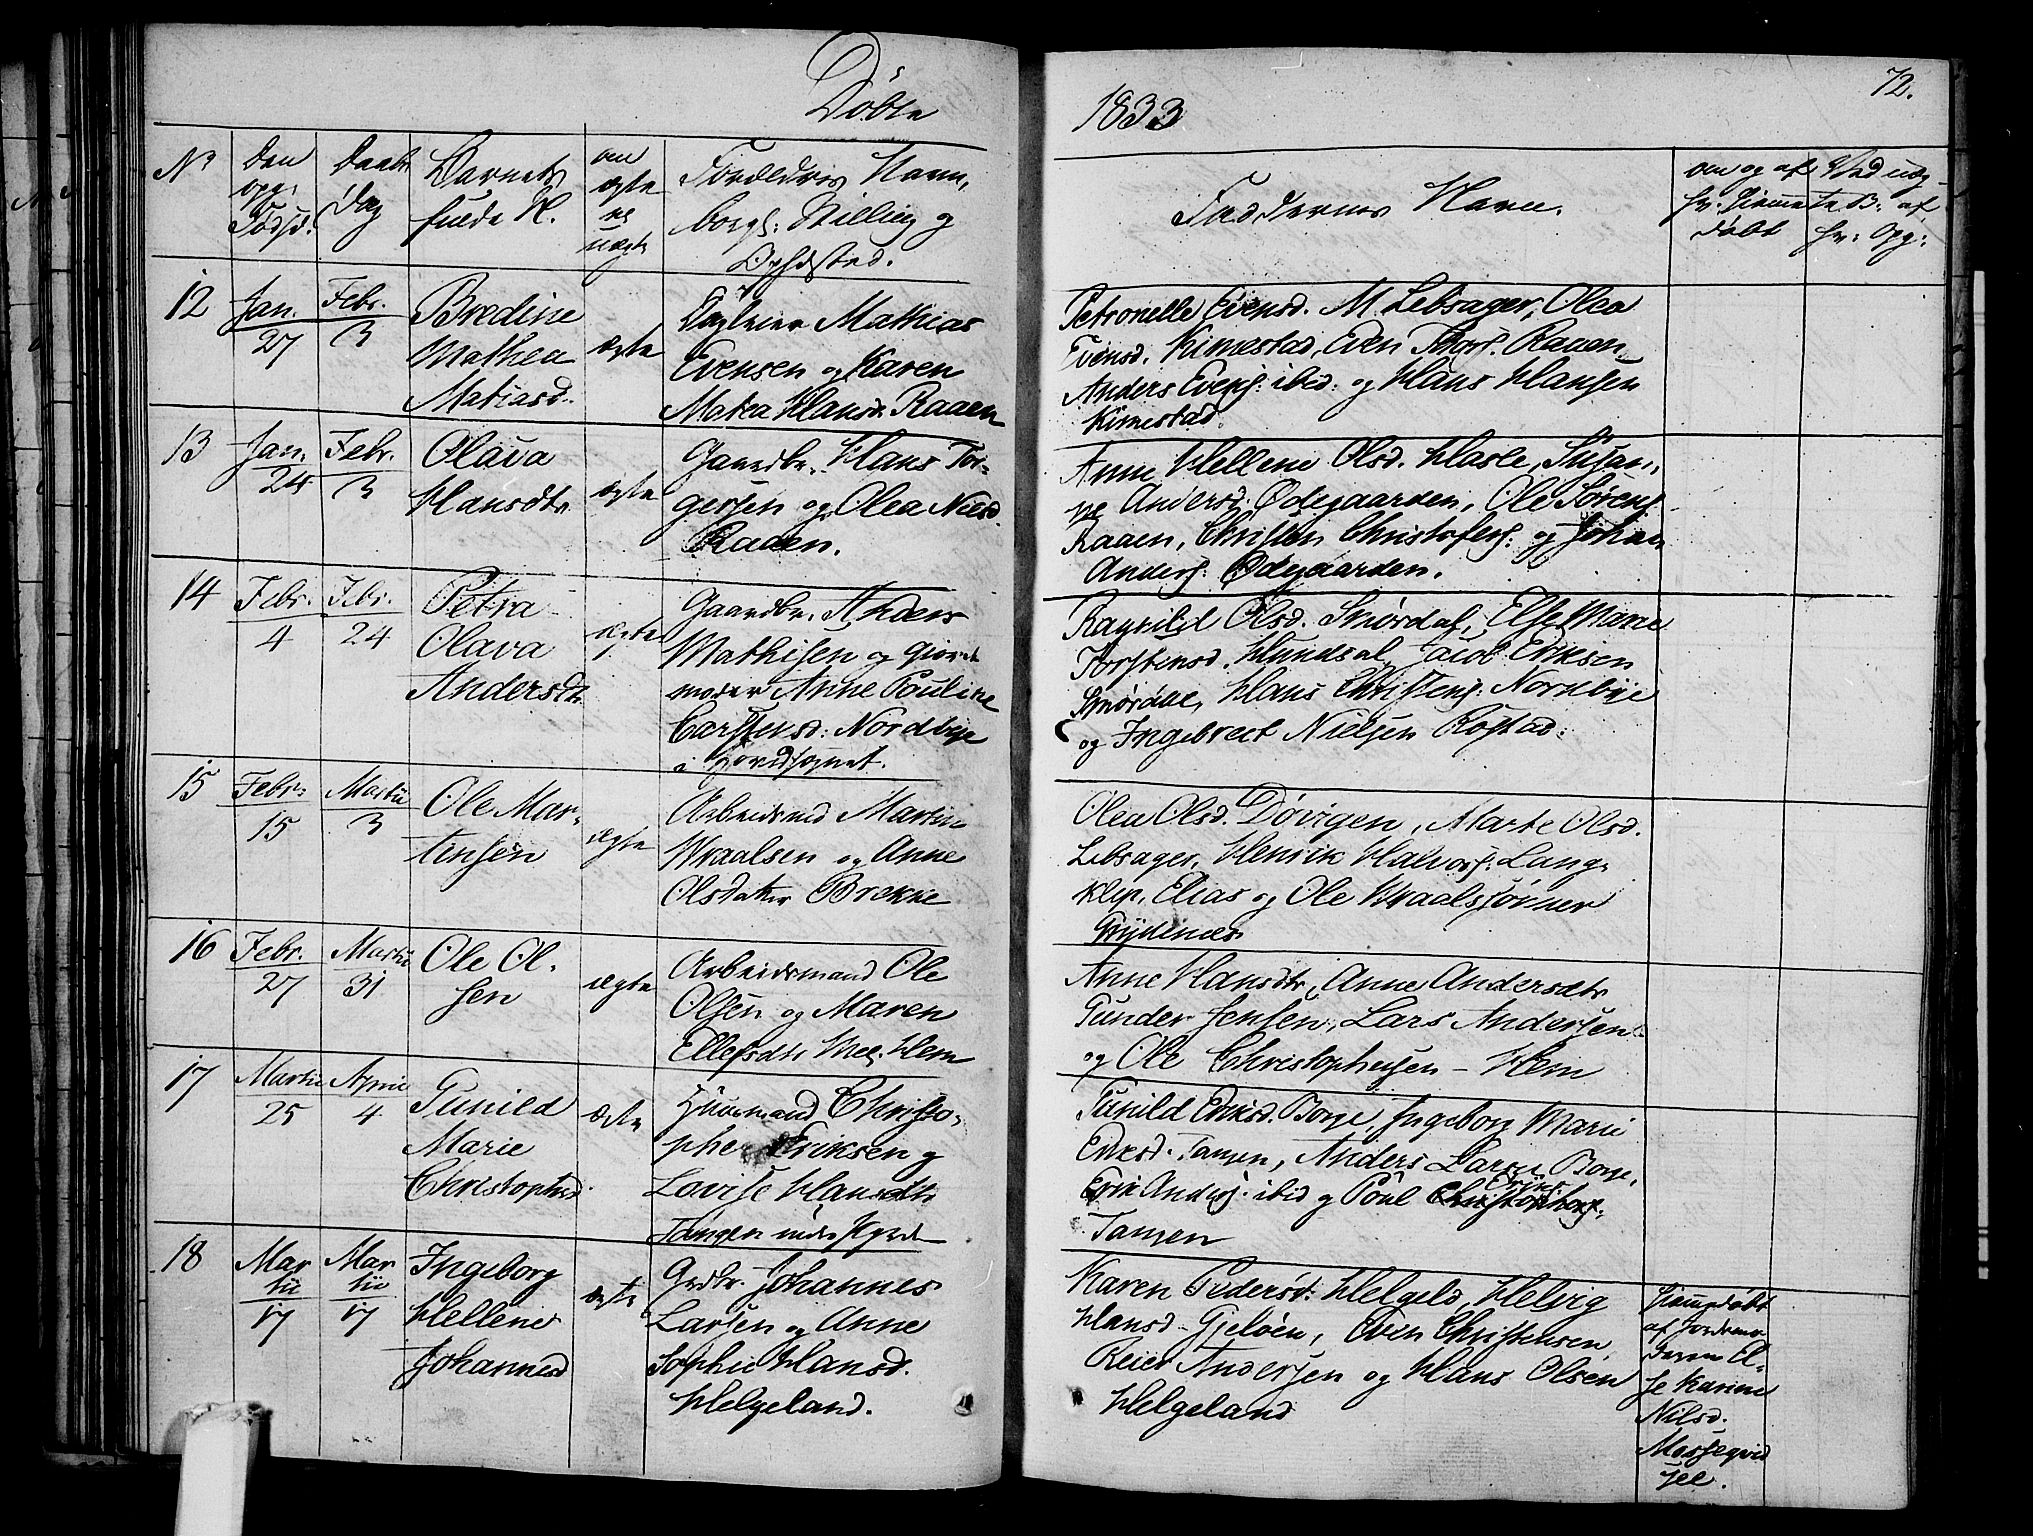 Döbte
1833
72.
No
Den opg: Fødsd:
Daabs Dag
Barnets fulde N.
om ægte el uægte
Forældres Navn, borgl: Stilling og Opholdsted.
Faddernes Navn.
om og af hv. hjemme døbt
12
Jan. 27
Febr. 3
Bredine
Mathea
Matiasd.
ægte
Mathias
Evensen og Karen
Matea Hansdr Raaen
Petronelle Evensd. M. Lebsager, Olea
Evensd. Kimestad, Even Thors. Raaen,
Anders Evens. ibid: og Hans Hansen
Kimestad.
13
Jan. 24
Febr. 3
Olava
Hansdtr
ægte
Gaardbr. Hans Tor-
gersen og Olea Nielsd.
Raaen.
Anne Hellene Olsd. Hasle, Susan-
ne Andersd. Ødegaarden, Ole Sørens.
Raaen, Christen Christofers: og Johan
Anders. Ødegaarden.
14
Febr. 4
Febr. 24
Petra
Olava
Andersdtr
ægte
Gaardbr. Anders
Mathisen og Giorde-
moder Anne Pouline
Carstensd: Nordbye
i Hovedsognet.
Ragnild Olsd. Smørdal, Else Marie
Torstensd. Hundsal, Jacob Eriksen
Smørdal, Hans Christens. Nordbye
og Ingebrect Nielsen Rostad:
15
Febr. 15
Martii 3
Ole Mar-
tinsen
ægte
Arbeidsmd Martin
Wraalsen og Anne
Olsdatter Brekke
Olea Olsd. Døvigen, Marte Olsd.
Lebsager, Henrik Halvors. Lang-
klep, Elias og Ole Wraalssønner
16
Febr. 27
Martii 31
Ole Ol-
sen
ægte
Arbeidsmand Ole
Olsen og Maren
Ellefsdtr Mel. Hem
Anne Hansdtr, Anne Andersdtr
Gunder Jensen, Lars Andersen
og Ole Christophersen – Hem
17
Martii 25
April 4
Gunild
Marie
Christophd.
ægte
Huusmand Christo-
pher Eriksen og
Lovise Hansdtr
Tangen
Gunild Eriksd. Borge, Ingeborg Marie
Eriksd. Tangen, Anders Larsen Borge,
Erik Anders. ibid og Poul Eriks.
Tangen
18
Martii 17
Martii 17
Ingeborg
Hellene
Johannesd
ægte
Grdbr. Johannes
Larsen og Anne
Sophie Hansd.
Helgeland.
Karen Pedersd: Helgeld, Helvig
Hansd. Gjeløen, Even Christensen,
Reier Andersen og Hans Olsen
Helgeland
hiemmedøbt
af Jordemo-
deren El-
se Karine
Nilsd.